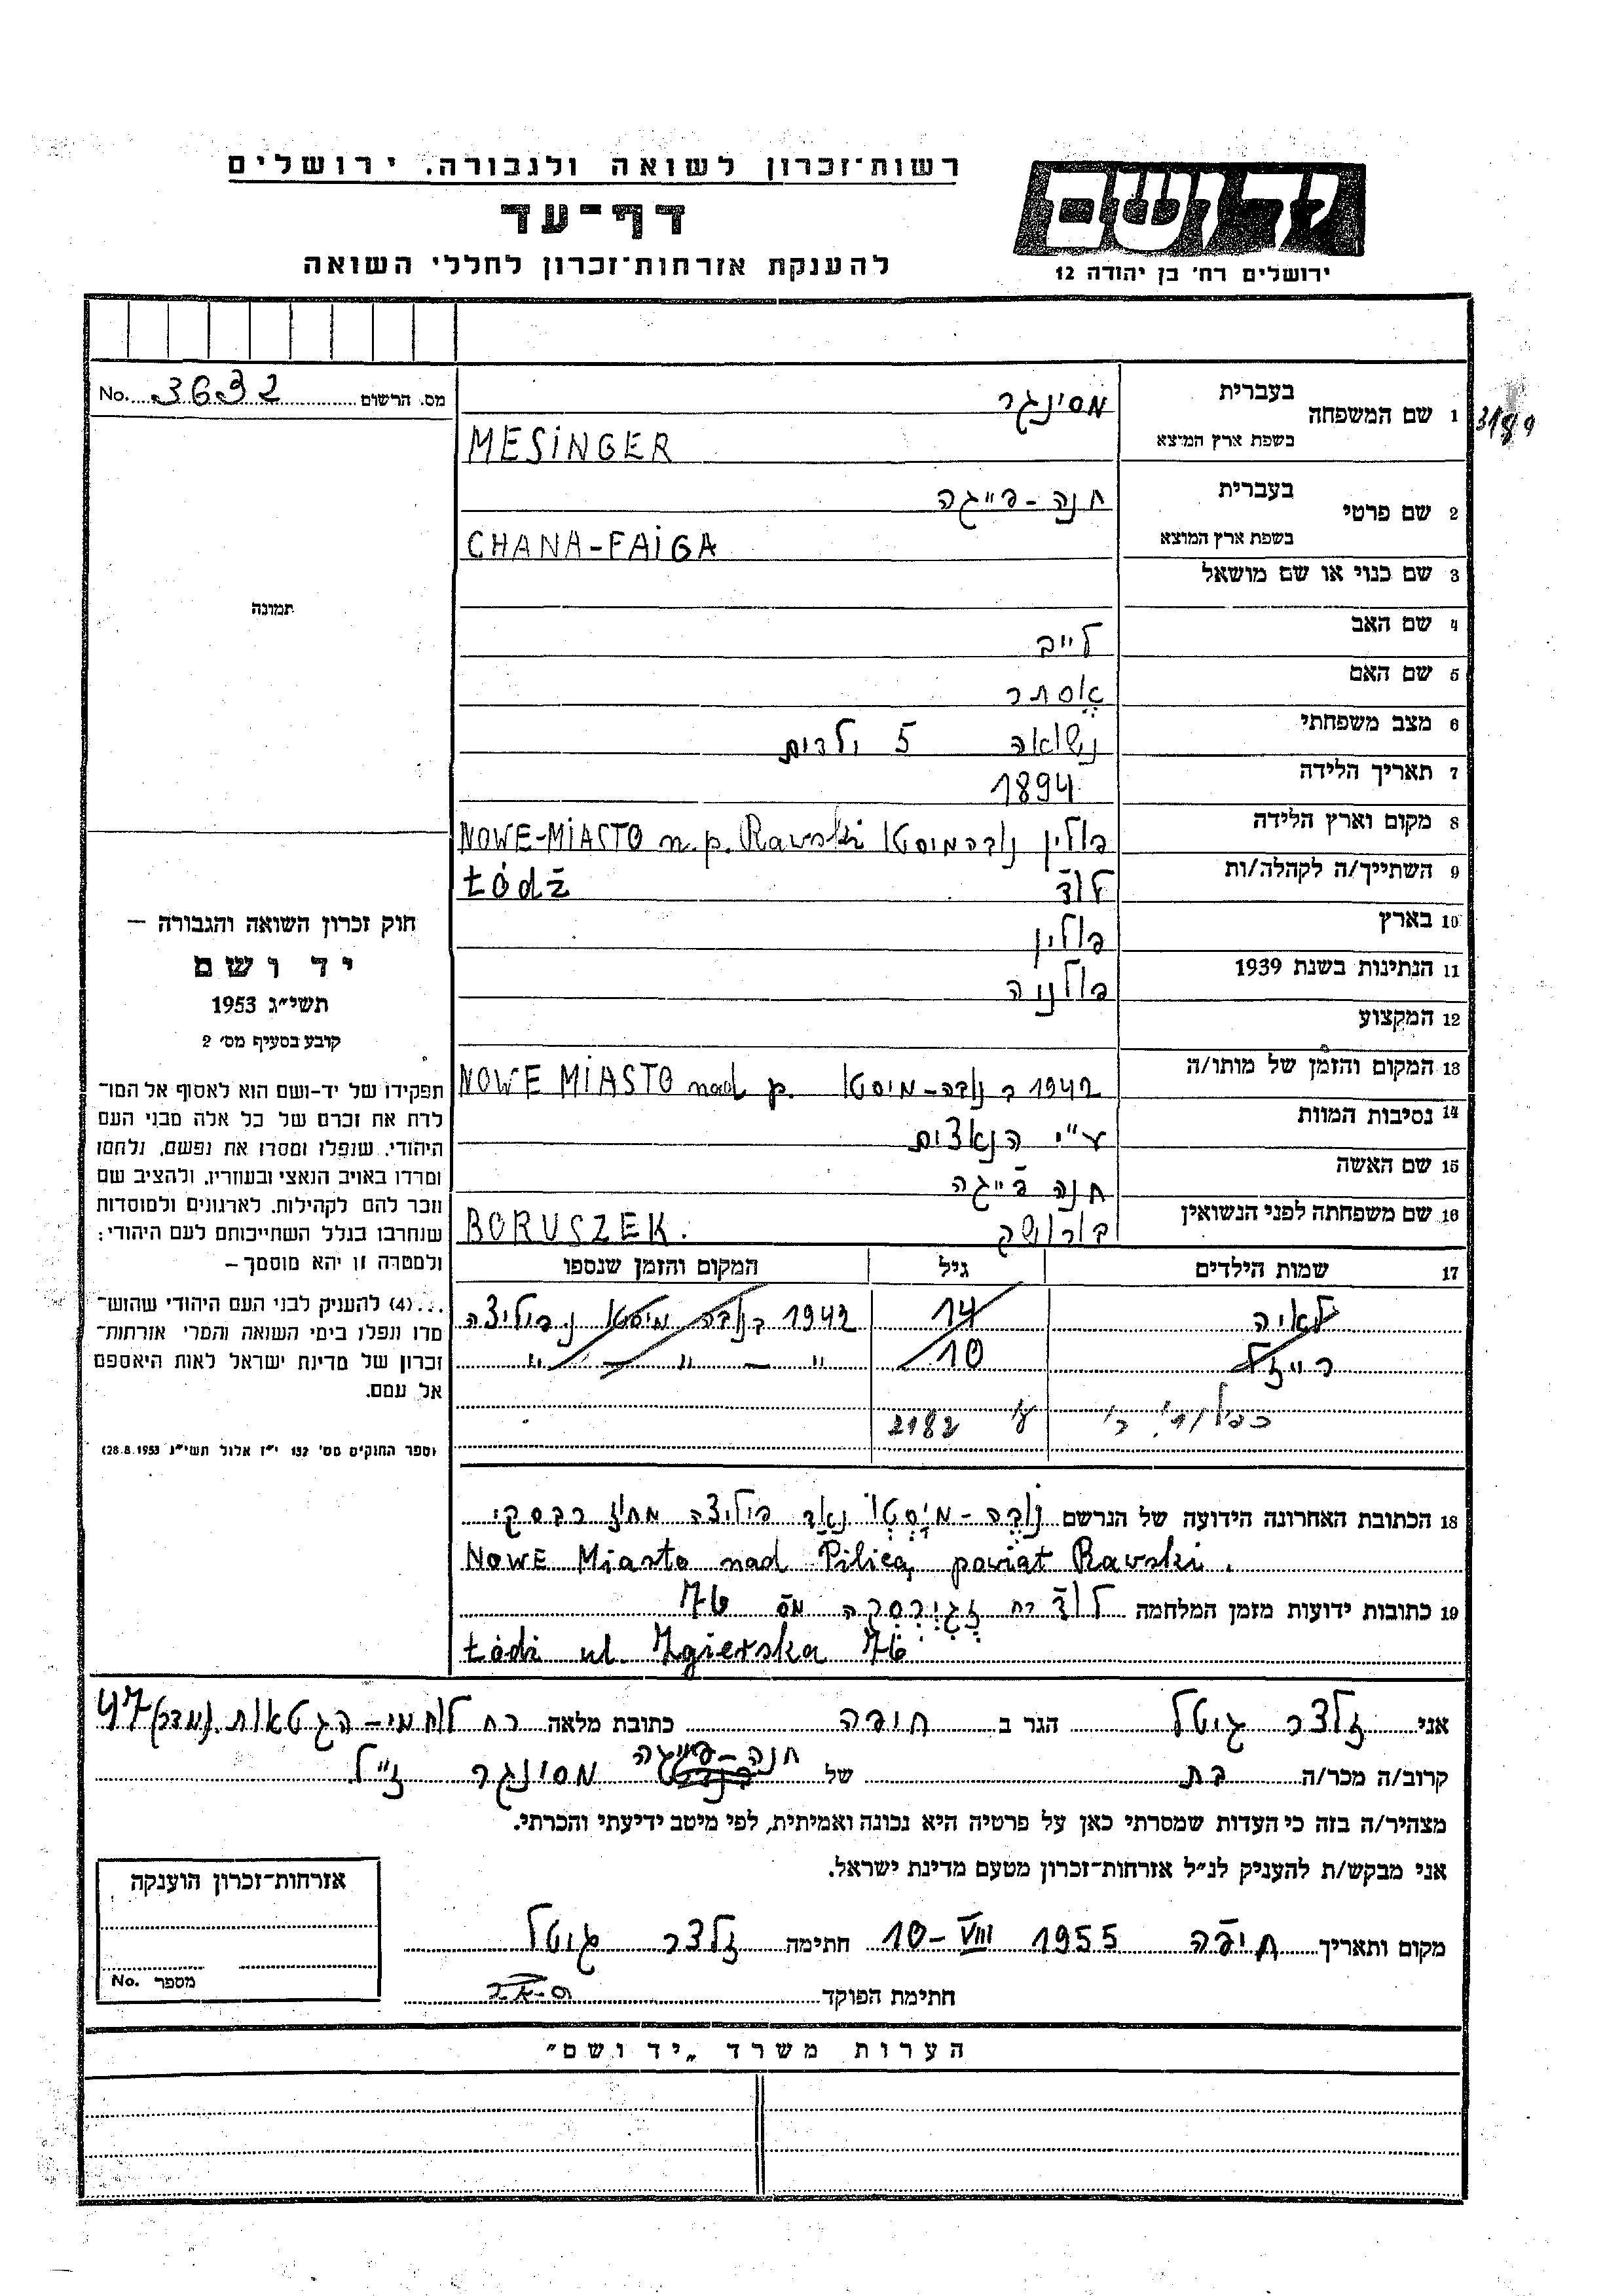 רשות־זכרון לשואה ולגבורה, ירושלים
דף־עד
להענקת אזרחות־זכרון לחללי השואה
יד ושם
ירושלים רח׳ בן יהודה 12
מס. הרשום 3632 No.
3189
1 שם המשפחה
בעברית מסינגר
בשפת ארץ המוצא MESINGER
2 שם פרטי
בעברית חנה-פייגה
בשפת ארץ המוצא CHANA-FAIGA
3 שם כנוי או שם מושאל
4 שם האב לייב
5 שם האם אסתר
6 מצב משפחתי נשואה 5 ילדים
7 תאריך הלידה 1894
8 מקום וארץ הלידה פולין נובהמיסטו NOWE-MIASTO n.p. Rawski
9 השתייך/ה לקהלה/ות לודז Łódź
10 בארץ פולין
11 הנתינות בשנת 1939 פולניה
12 המקצוע
13 המקום והזמן של מותו/ה 1942 ב נובה-מיסטו NOWE MIASTO nad p.
14 נסיבות המוות ע"י הנאצים
15 שם האשה חנה פייגה
16 שם משפחתה לפני הנשואין בורושק BORUSZEK.
17 שמות הילדים גיל המקום והזמן שנספו
לאיה 14 1942 בנובה מיסטו נ פיליצה
רייזל 10 " — " — "
2182
18 הכתובת האחרונה הידועה של הנרשם נובה-מיסטו נאד פיליצה מחוז רבסקי
NOWE Miasto nad Pilicą, powiat Rawski.
19 כתובות ידועות מזמן המלחמה לודז רח זגירסקה מס 76
Łódź ul. Zgierska 76
תמונה
חוק זכרון השואה והגבורה —
יד ושם
תשי״ג 1953
קובע בסעיף מס׳ 2
תפקידו של יד-ושם הוא לאסוף אל המו־
לדת את זכרם של כל אלה מבני העם
היהודי, שנפלו ומסרו את נפשם, נלחמו
ומרדו באויב הנאצי ובעוזריו, ולהציב שם
וזכר להם לקהילות, לארגונים ולמוסדות
שנחרבו בגלל השתייכותם לעם היהודי;
ולמטרה זו יהא מוסמך —
...(4) להענית לבני העם היהודי שהוש־
מדו ונפלו בימי השואה והמרי אזרחות־
זכרון של מדינת ישראל לאות היאספם
אל עמם.
(ספר החוקים מס׳ 132 י״ז אלול תשי״ג 28.8.1953)
אני זלצר גיטל הגר ב חיפה כתובת מלאה רח לוחמי-הגטאות 47
קרוב/ה מכר/ה בת של חנה-פייגה מסינגר ז"ל
מצהיר/ה בזה כי העדות שמסרתי כאן על פרטיה היא נכונה ואמיתית, לפי מיטב ידיעתי והכרתי.
אני מבקש/ת להעניק לנ״ל אזרחות־זכרון מטעם מדינת ישראל.
מקום ותאריך חיפה 10-VIII 1955 חתימה זלצר גיטל
חתימת הפוקד
אזרחות־זכרון הוענקה
מספר No.
הערות משרד „יד ושם״